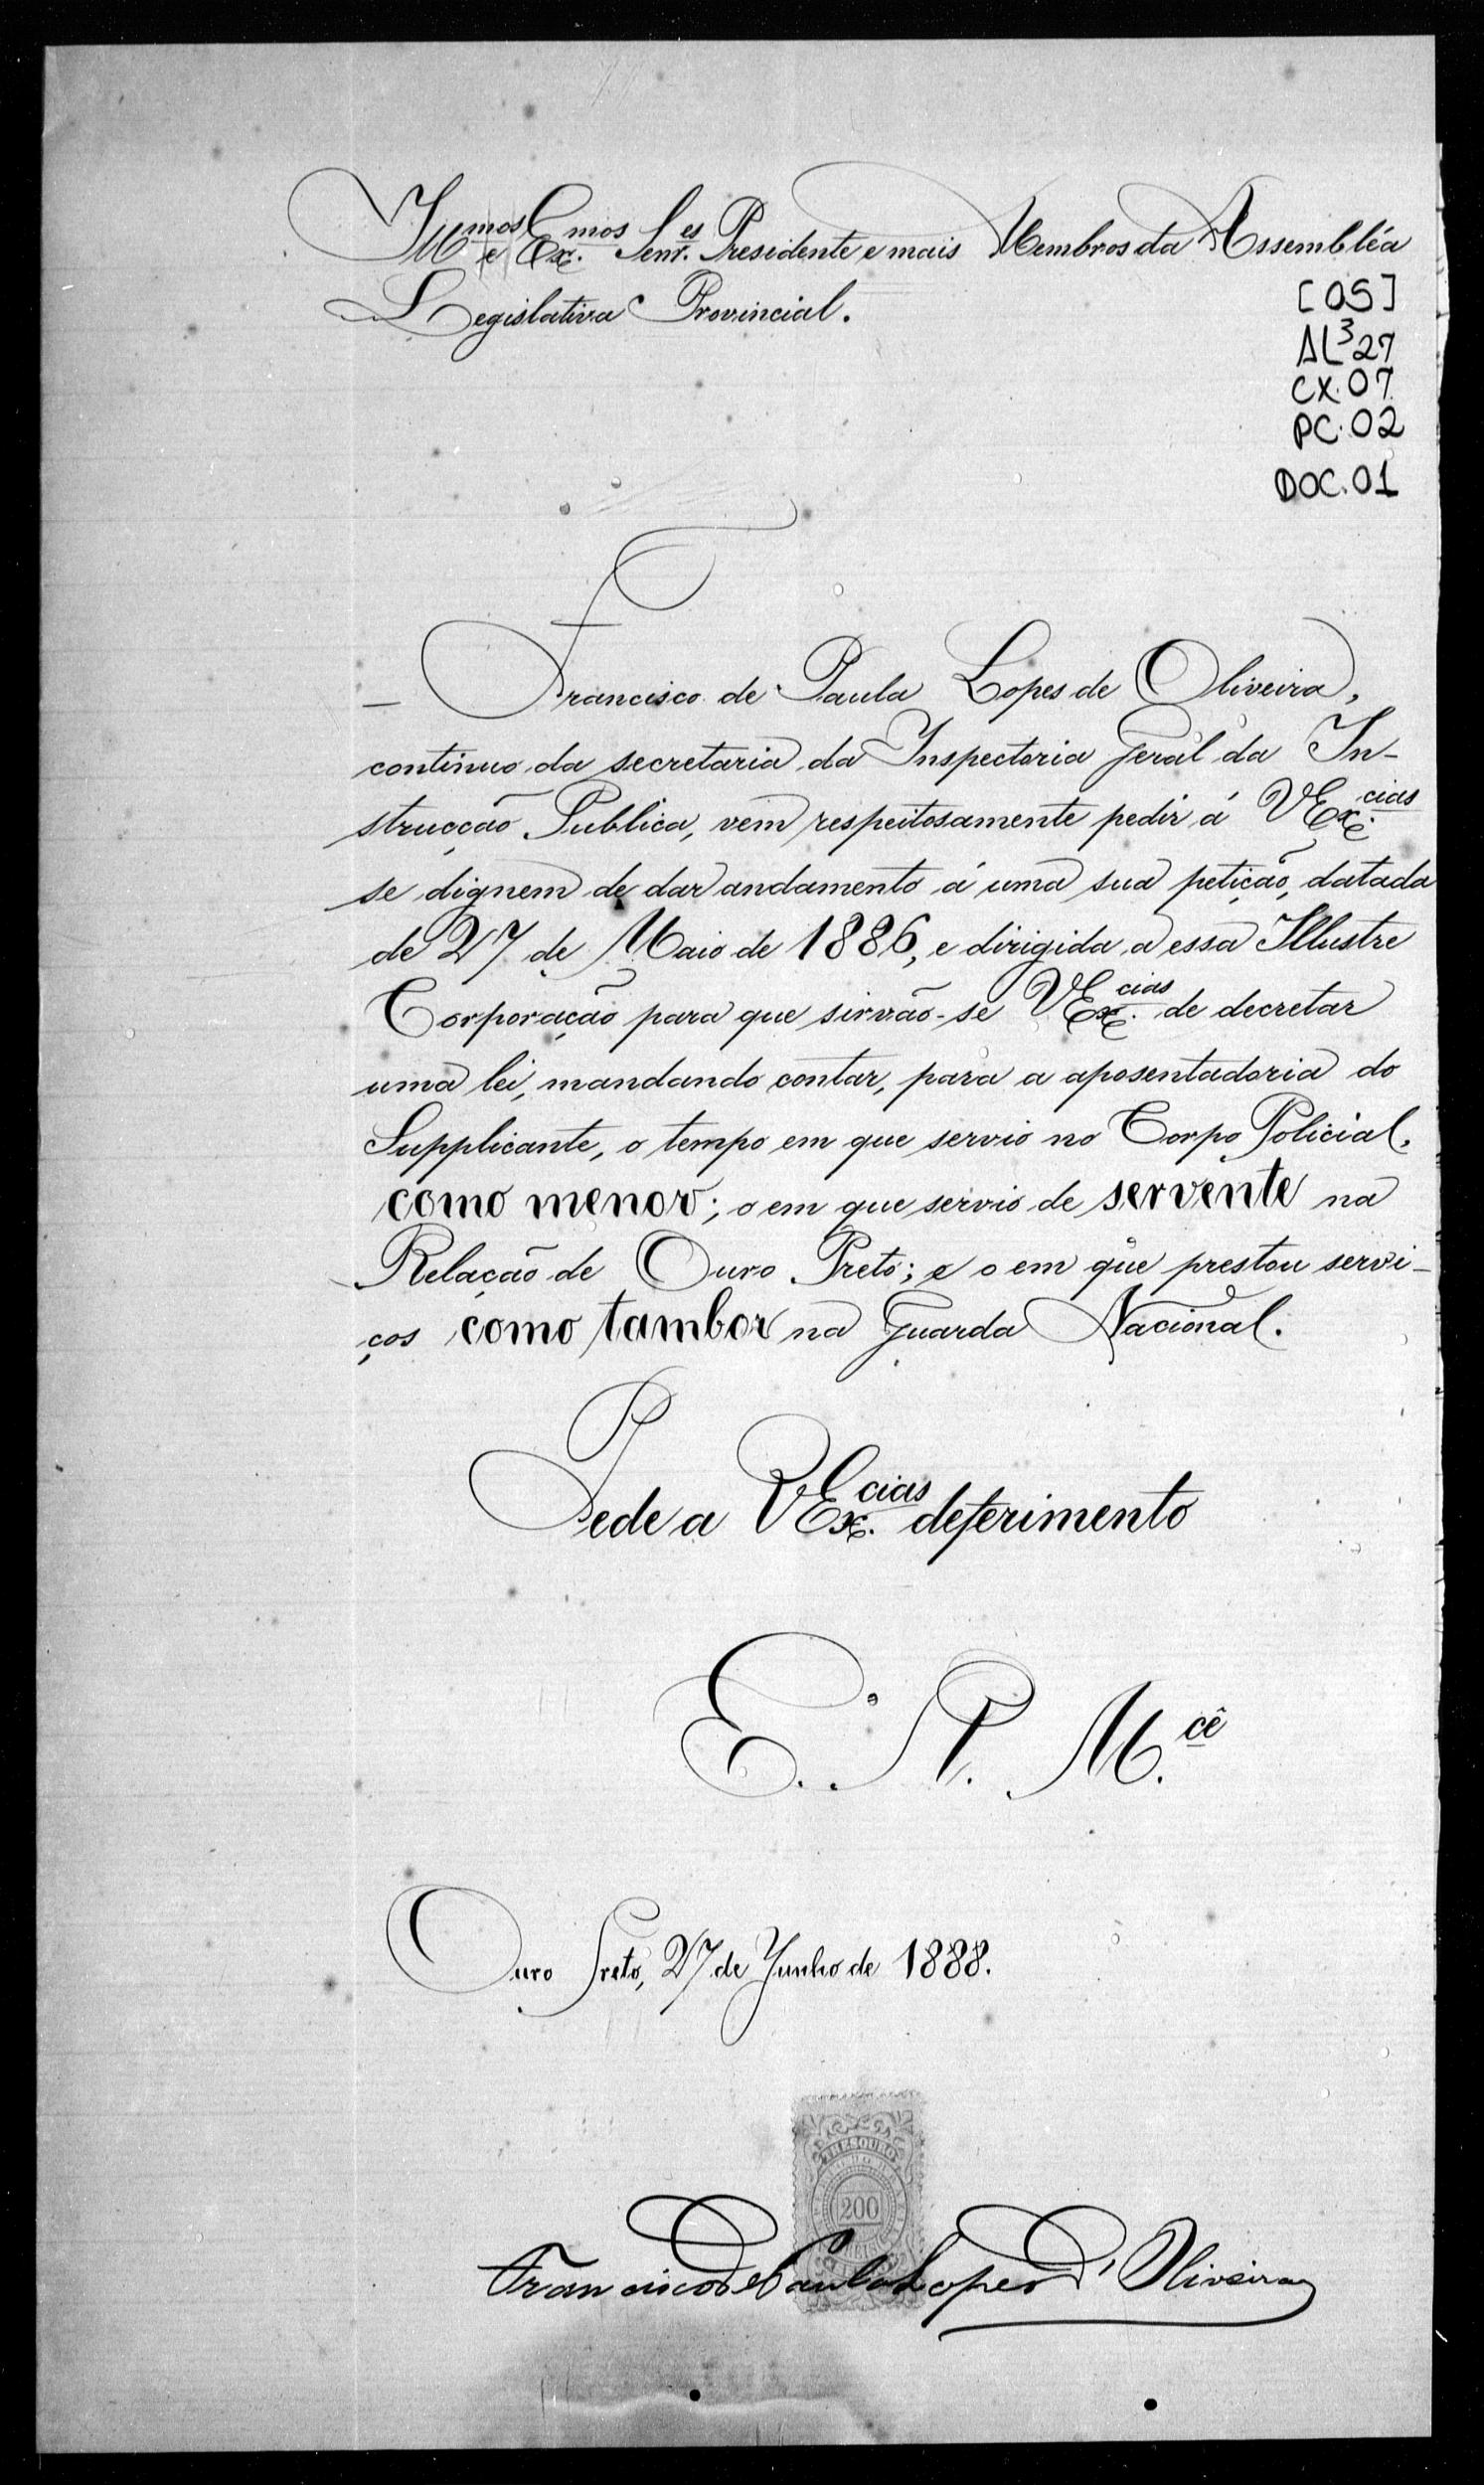 Illmos e Exmos. Senres. Presidente e mais Membros da Assembléa
Legislativa Provincial.
[05]
AL³27
CX.07
PC.02
DOC.01
— Francisco de Paula Lopes de Oliveira,
continuo da secretaria da Inspectoria Geral da In-
strucção Publica, vem respeitosamente pedir á VExc.cias
se dignem de dar andamento á uma sua petição, datada
de 27 de Maio de 1886, e dirigida a essa Illustre
Corporação para que sirvão-se VExc.cias de decretar
uma lei, mandando contar, para a aposentadoria do
Supplicante, o tempo em que servio no Corpo Policial,
como menor; o em que servio de servente na
Relação de Ouro Preto; e o em que prestou servi-
ços como tambor na Guarda Nacional.
Pede a VExc.cias deferimento
E. R. M.cê
Ouro Preto, 27 de Junho de 1888.
THESOURO
200
Francisco de Paula Lopes d'Oliveira